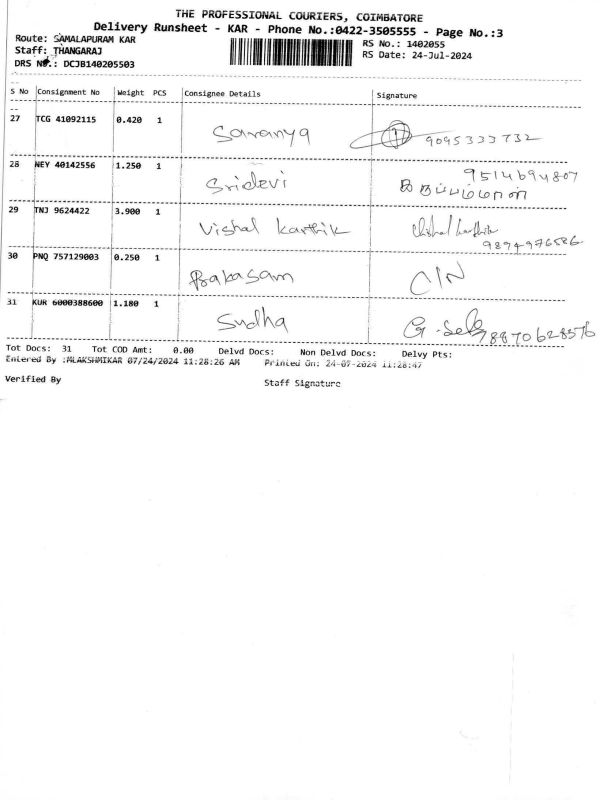 THE PROFESSIONAL COURIERS, COIMBATORE
Delivery Runsheet - KAR - Phone No.:0422-3505555 - Page No.:3
Route: SAMALAPURAM KAR RS No.: 1402055
Staff: THANGARAJ RS Date: 24-Jul-2024
DRS No.: DCJB140205503
S No Consignment No Weight PCS Consignee Details Signature
27 TCG 41092115 0.420 1 Saranya 9095333732
28 NEY 40142556 1.250 1 Sridevi 9514694807
29 TNJ 9624422 3.900 1 Vishal Karthik Vishal Karthik
9894976586
30 PNQ 757129003 0.250 1 Prakasam C/N
31 KUR 6000388600 1.180 1 Sudha G. 8870628576
Tot Docs: 31 Tot COD Amt: 0.00 Delvd Docs: Non Delvd Docs: Delvy Pts:
Entered By :MLAKSHMIKAR 07/24/2024 11:28:26 AM Printed On: 24-07-2024 11:28:47
Verified By Staff Signature